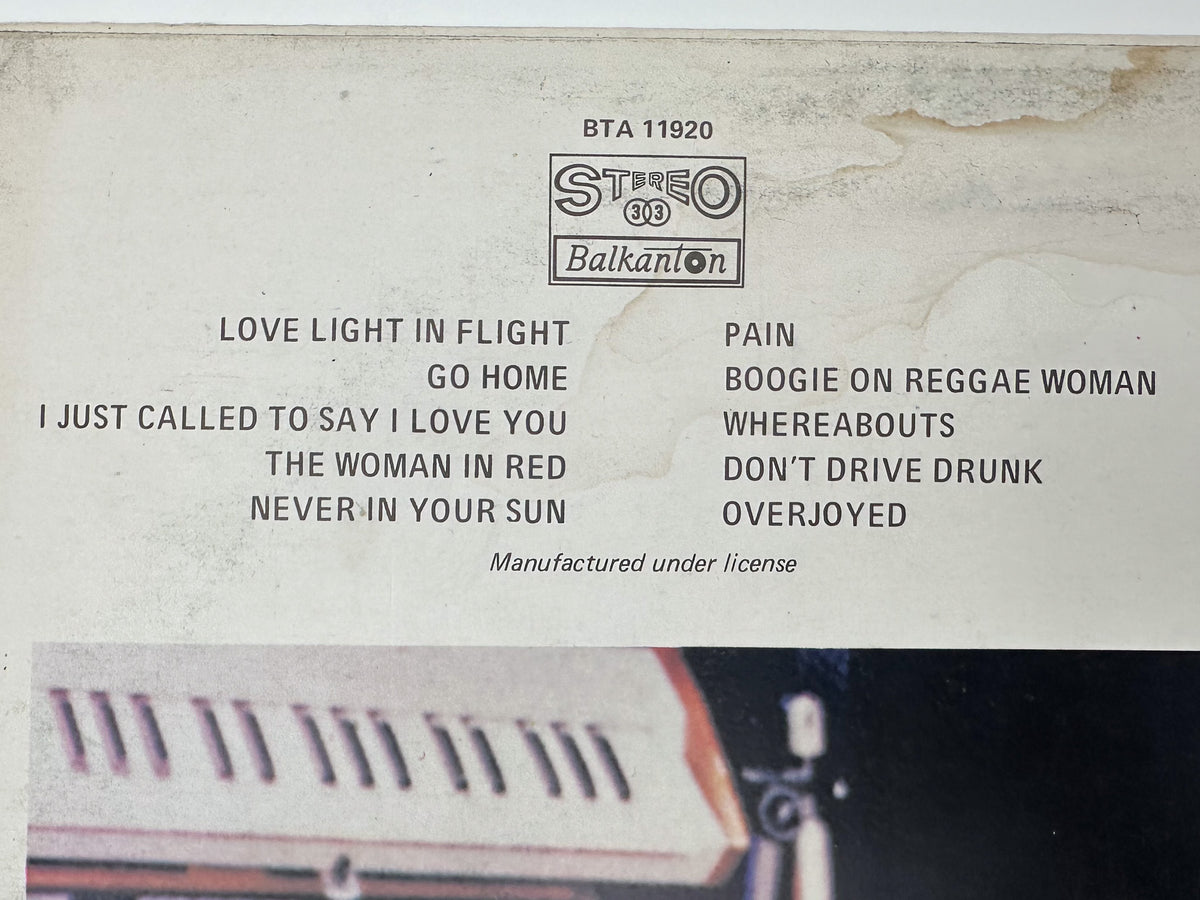 BTA 11920
STEREO
33
Balkanton
LOVE LIGHT IN FLIGHT
GO HOME
I JUST CALLED TO SAY I LOVE YOU
THE WOMAN IN RED
NEVER IN YOUR SUN
PAIN
BOOGIE ON REGGAE WOMAN
WHEREABOUTS
DON'T DRIVE DRUNK
OVERJOYED
Manufactured under license